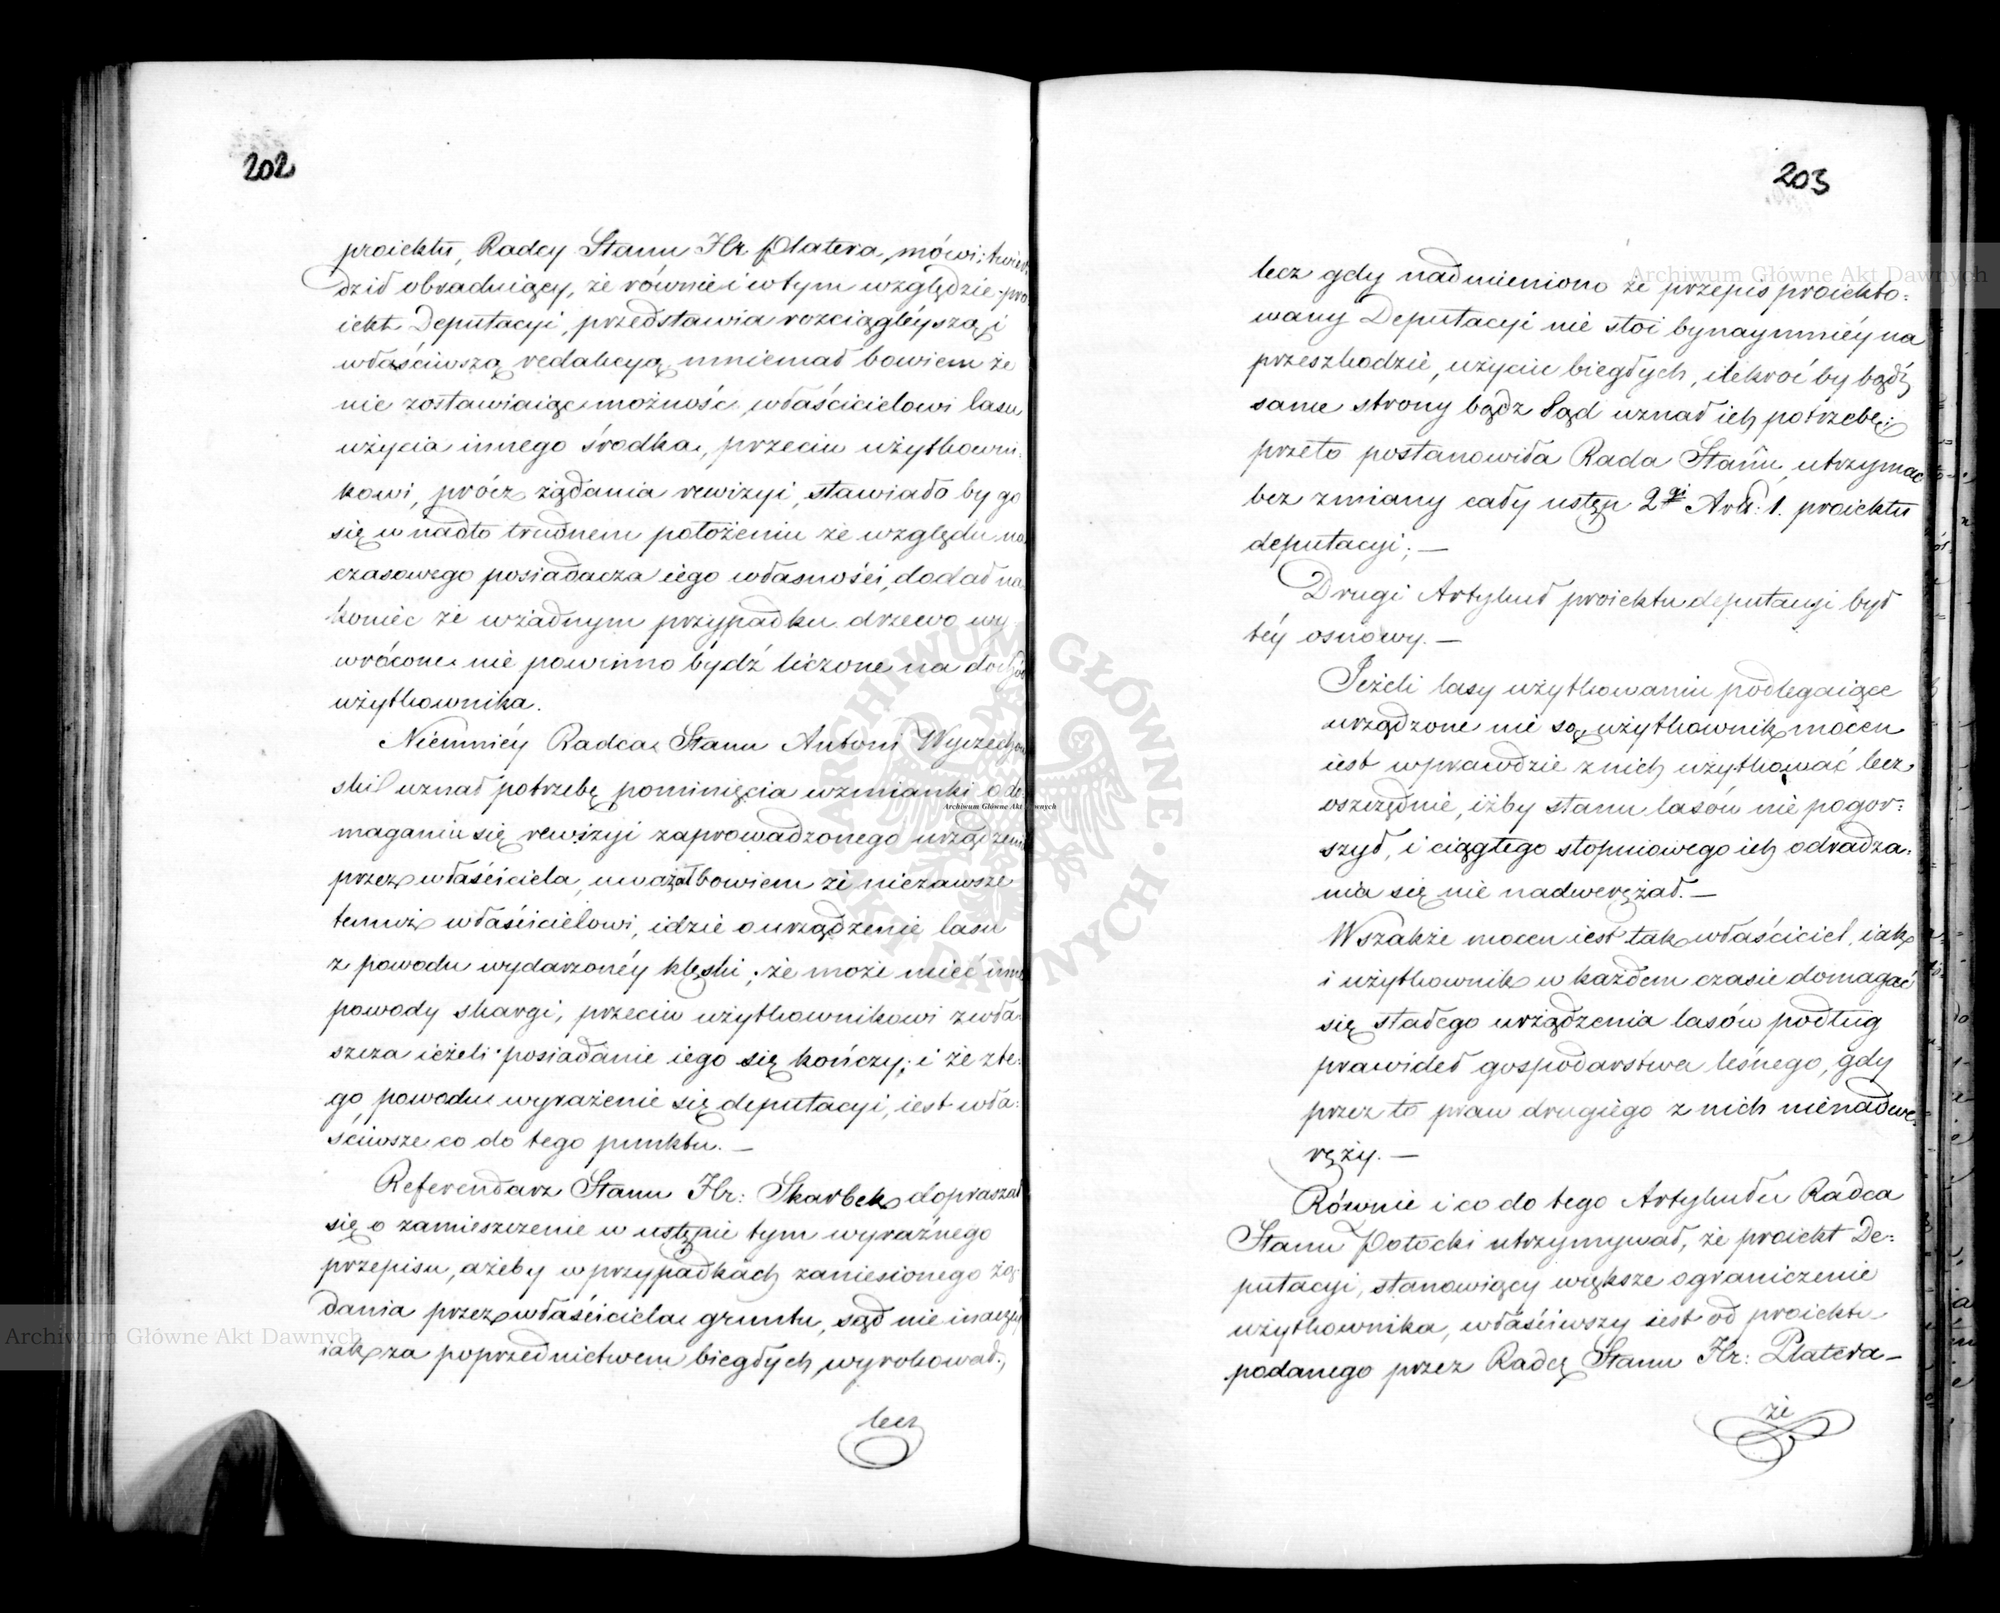 202
proiektu, Radcy Stanu Hr Platera, mówi: twier
dził obraduiący, że równie i w tym względzie pro
iekt Deputacyi, przedstawia rozciągléyszą i
właściwszą redakcyą, mniemał bowiem że
nie zostawiaiąc możność właścicielowi lasu
użycia innego środka, przeciw użytkowni:
kowi, prócz żądania rewizyi, stawiało by go
się w nadto trudnem położeniu ze względu na
czasowego posiadacza iego własności, dodał na
koniec że w żadnym przypadku drzewo wy
wrócone nie powinno bydź liczone na dochód
użytkownika.
Niemniéy Radca Stanu Antoni Wyczechow
ski uznał potrzebę pominięcia wzmianki o do
maganiu się rewizyi zaprowadzonego urządzenia
przez właściciela, uważał bowiem że nie zawsze
temuż właścicielowi, idzie o urządzenie lasu
z powodu wydarzonéy klęski; że może mieć inne
powody skargi, przeciw użytkownikowi zwła:
szcza ieżeli posiadanie iego się kończy; i że z te:
go powodu wyrażenie się deputacyi, iest wła:
ściwsze co do tego punktu. —
Referendarz Stanu Hr: Skarbek dopraszał
się o zamieszczenie w ustępie tym wyraźnego
przepisu, ażeby w przypadkach zaniesionego żą
dania przez właściciela gruntu, sąd nie inaczéy
iak za poprzednictwem biegłych wyrokował;
lecz
203
lecz gdy nadmieniono że przepis proiekto:
wany Deputacyi nie stoi bynaymniéy na
przeszkodzie, użyciu biegłych, ilekroć by bądź
same strony bądz Sąd uznał ich potrzebę;
przeto postanowiła Rada Stanu, utrzymać
bez zmiany cały ustęp 2gi Art: 1. proiektu
deputacyi; —
Drugi Artykuł proiektu deputacyi był
téy osnowy. —
Jeżeli lasy użytkowaniu podlegaiące
urządzone nie są, użytkownik mocen
iest wprawdzie z nich użytkować lecz
oszczędnie, iżby stanu lasów nie pogor:
szył, i ciągłego stopniowego ich odradza:
nia się nie nadwerężał. —
Wszakże mocen iest tak właściciel, iak
i użytkownik w każdem czasie domagać
się stałego urządzenia lasów podług
prawideł gospodarstwa leśnego, gdy
przez to praw drugiego z nich nienadwe
ręży. —
Równie i co do tego Artykułu Radca
Stanu Potocki utrzymywał, że proiekt De:
putacyi, stanowiący większe ograniczenie
użytkownika, właściwszy iest od proiektu
podanego przez Radcę Stanu Hr: Platera —
że
Archiwum Główne Akt Dawnych
Archiwum Główne Akt Dawnych
Archiwum Główne Akt Dawnych
ARCHIWUM GŁÓWNE AKT DAWNYCH